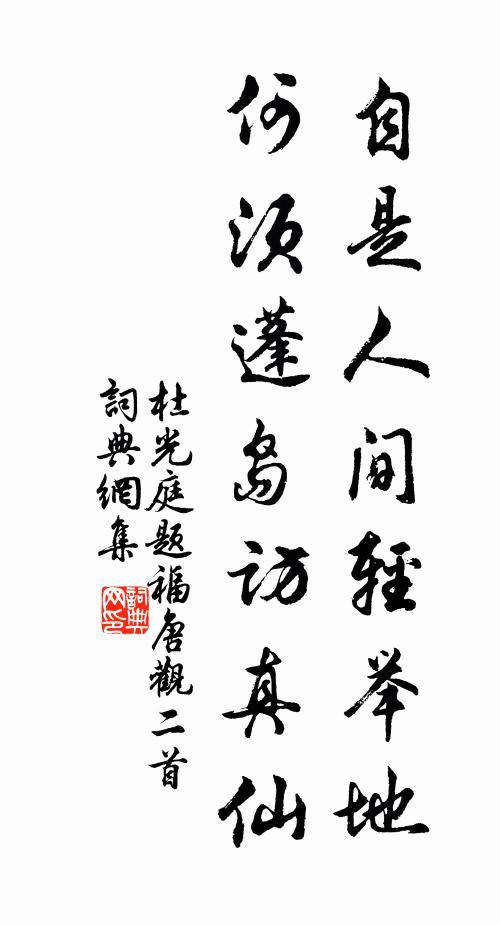 自是人间輕举地
何須蓬岛訪真仙
杜光庭題福唐觀二首
詞典網集
詞典网印